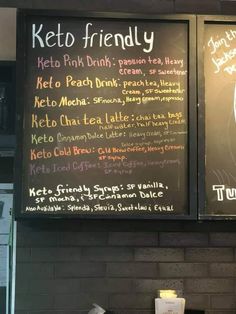 Keto friendly
Keto Pink Drink: passion tea, Heavy
cream, SF Sweetener
Keto Peach Drink: peach tea, Heavy
cream, SF Sweetener
Keto Mocha: SF mocha, Heavy cream, espresso
Keto Chai tea latte: chai tea bags
half water, half heavy cream
Keto Cinnamon Dolce Latte: Heavy Cream, SF Cinnamon
Dolce syrup, espresso
Keto Cold Brew: Cold Brew Coffee, Heavy Cream
SF syrup.
Keto Iced Coffee: Iced Coffee, Heavy cream
SF syrup.
Keto friendly Syrups: SF Vanilla,
SF Mocha, & SF Cinnamon Dolce
Also Available: Splenda, Stevia, Sweet n low & Equal
Join th